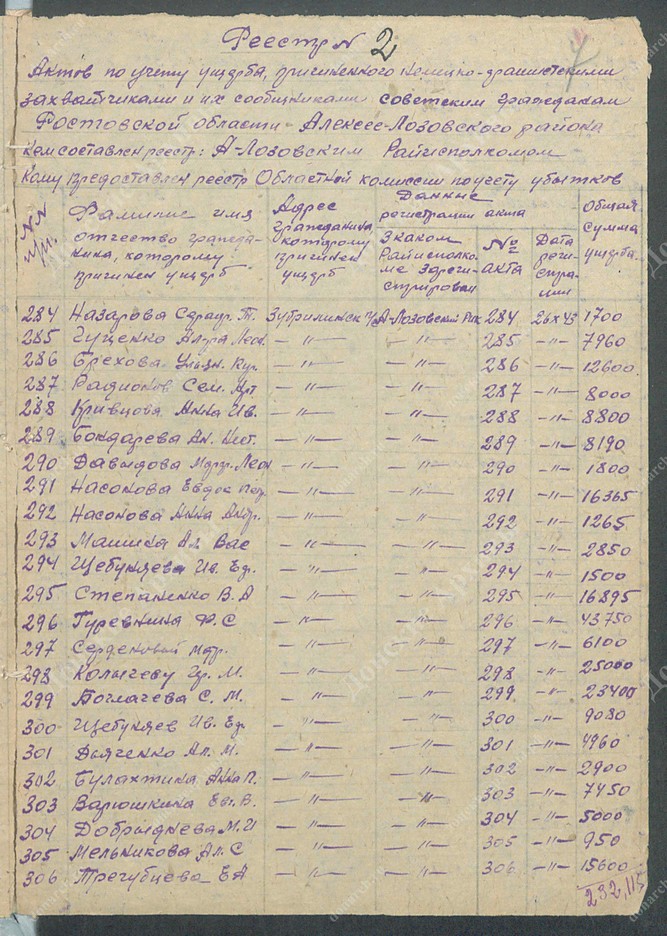 Реестр N 2
Актов по учету ущерба, причиненного немецко-фашистскими
захватчиками и их сообщниками советским гражданам
Ростовской области - Алексее-Лозовского района
Кем составлен реестр: А-Лозовским Райисполкомом
Кому предоставлен реестр Областной комиссии по учету убытков
NN п/п. Фамилие имя отчество гражданина, которому причинен ущерб Адрес гражданина которому причинен ущерб Данные регистрации акта Общая сумма ущерба.
Знаком Райисполкоме зарегистрирован №№ акта Дата регистрации
284 Назарова Т. А-Лозовский Рик 284 26 X 43 1700
285 Гущенко Леон. -"- -"- 285 -"- 7960
286 Брехова -"- -"- 286 -"- 12600
287 Радионов Сем. Арт -"- -"- 287 -"- 8000
288 Кривцова Анна Ив. -"- -"- 288 -"- 8800
289 Бондарева Ан. -"- -"- 289 -"- 8190
290 Давыдова Леон -"- -"- 290 -"- 1800
291 Насонова Евдок Петр. -"- -"- 291 -"- 16365
292 Насонова Анна Андр. -"- -"- 292 -"- 1265
293 Ал Вас -"- -"- 293 -"- 2850
294 Щебуняева Ив. Ед. -"- -"- 294 -"- 1500
295 Степаненко В. А -"- -"- 295 -"- 16895
296 Гуревнина Ф. С -"- -"- 296 -"- 43750
297 -"- -"- 297 -"- 6100
298 Колычеву Гр. М. -"- -"- 298 -"- 25000
299 Боглачева С. М. -"- -"- 299 -"- 23400
300 Щебуняев Ив. Ед. -"- -"- 300 -"- 9080
301 Дьяченко Ал. М. -"- -"- 301 -"- 4960
302 Булахтина Анна П. -"- -"- 302 -"- 2900
303 Варюшкина Ев. В. -"- -"- 303 -"- 7450
304 Добрыднева М. И -"- -"- 304 -"- 5000
305 Мельникова Ал. С -"- -"- 305 -"- 950
306 Трегубцева Е А -"- -"- 306 -"- 15600
232,115